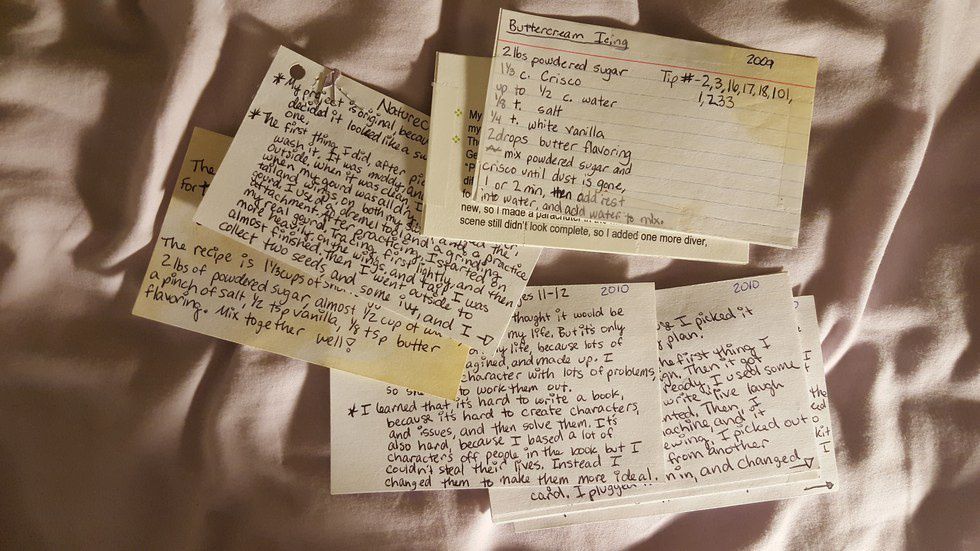 Buttercream Icing
2009
2 lbs powdered sugar
Tip #-2,3,16,17,18,101,
1,233
1⅓ c. Crisco
up to ½ c. water
⅛ t. salt
¼ t. white vanilla
2 drops butter flavoring
mix powdered sugar and
crisco until dust is gone,
1 or 2 min, then add rest
into water, and add water to mix.
My
my
Th
Ge
new, so I made a parachuter in the
scene still didn't look complete, so I added one more diver,
* My project is original, because
decided it looked like a
one.
* The first thing I did, after
wash it. It was muddy, and
outside when it was clean.
when my gourd was all dry
tail and wings, on both my practice
gourd. I used a dremel tool and a grinding
attachment to
my real gourd after practicing. I started on
more heavily on the wings, and tail. I was
almost finished then I went outside to
collect two seeds, and some ivy, and I
The
for
The recipe is 1⅓ cups of
2 lbs of powdered sugar, almost ½ cup of
a pinch of salt, ½ tsp vanilla, ⅛ tsp butter
flavoring. Mix together
well!
11-12
2010
thought it would be
my life. But it's only
my life, because lots of
imagined, and made up. I
character with lots of problems,
to work them out.
* I learned that it's hard to write a book,
because it's hard to create characters,
and issues, and then solve them. It's
also hard, because I based a lot of
characters off people in the book but I
couldn't steal their lives. Instead I
changed them to make them more ideal.
2010
I picked it
plan.
the first thing I
Then it got
ready, I used some
write "live laugh
Then, I
machine, and it
sewing. I picked out
from another
in, and changed
card. I plugged
kit